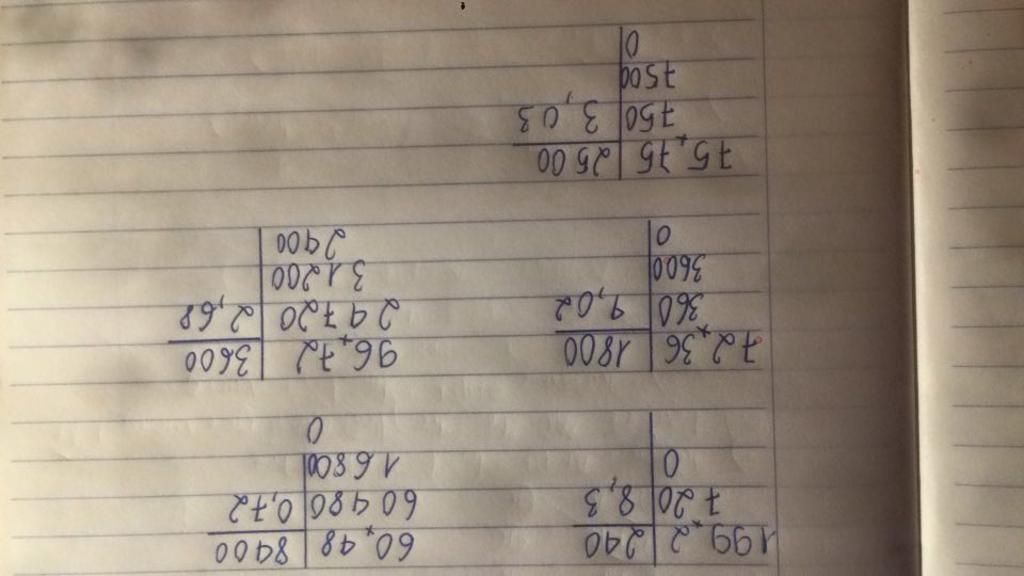 199,2 240
720 8,3
0
60,48 8400
60480 0,72
16800
0
72,36 1800
360 4,02
3600
0
96,72 3600
24720 2,68
31200
2400
75,75 2500
750 3,03
7500
0